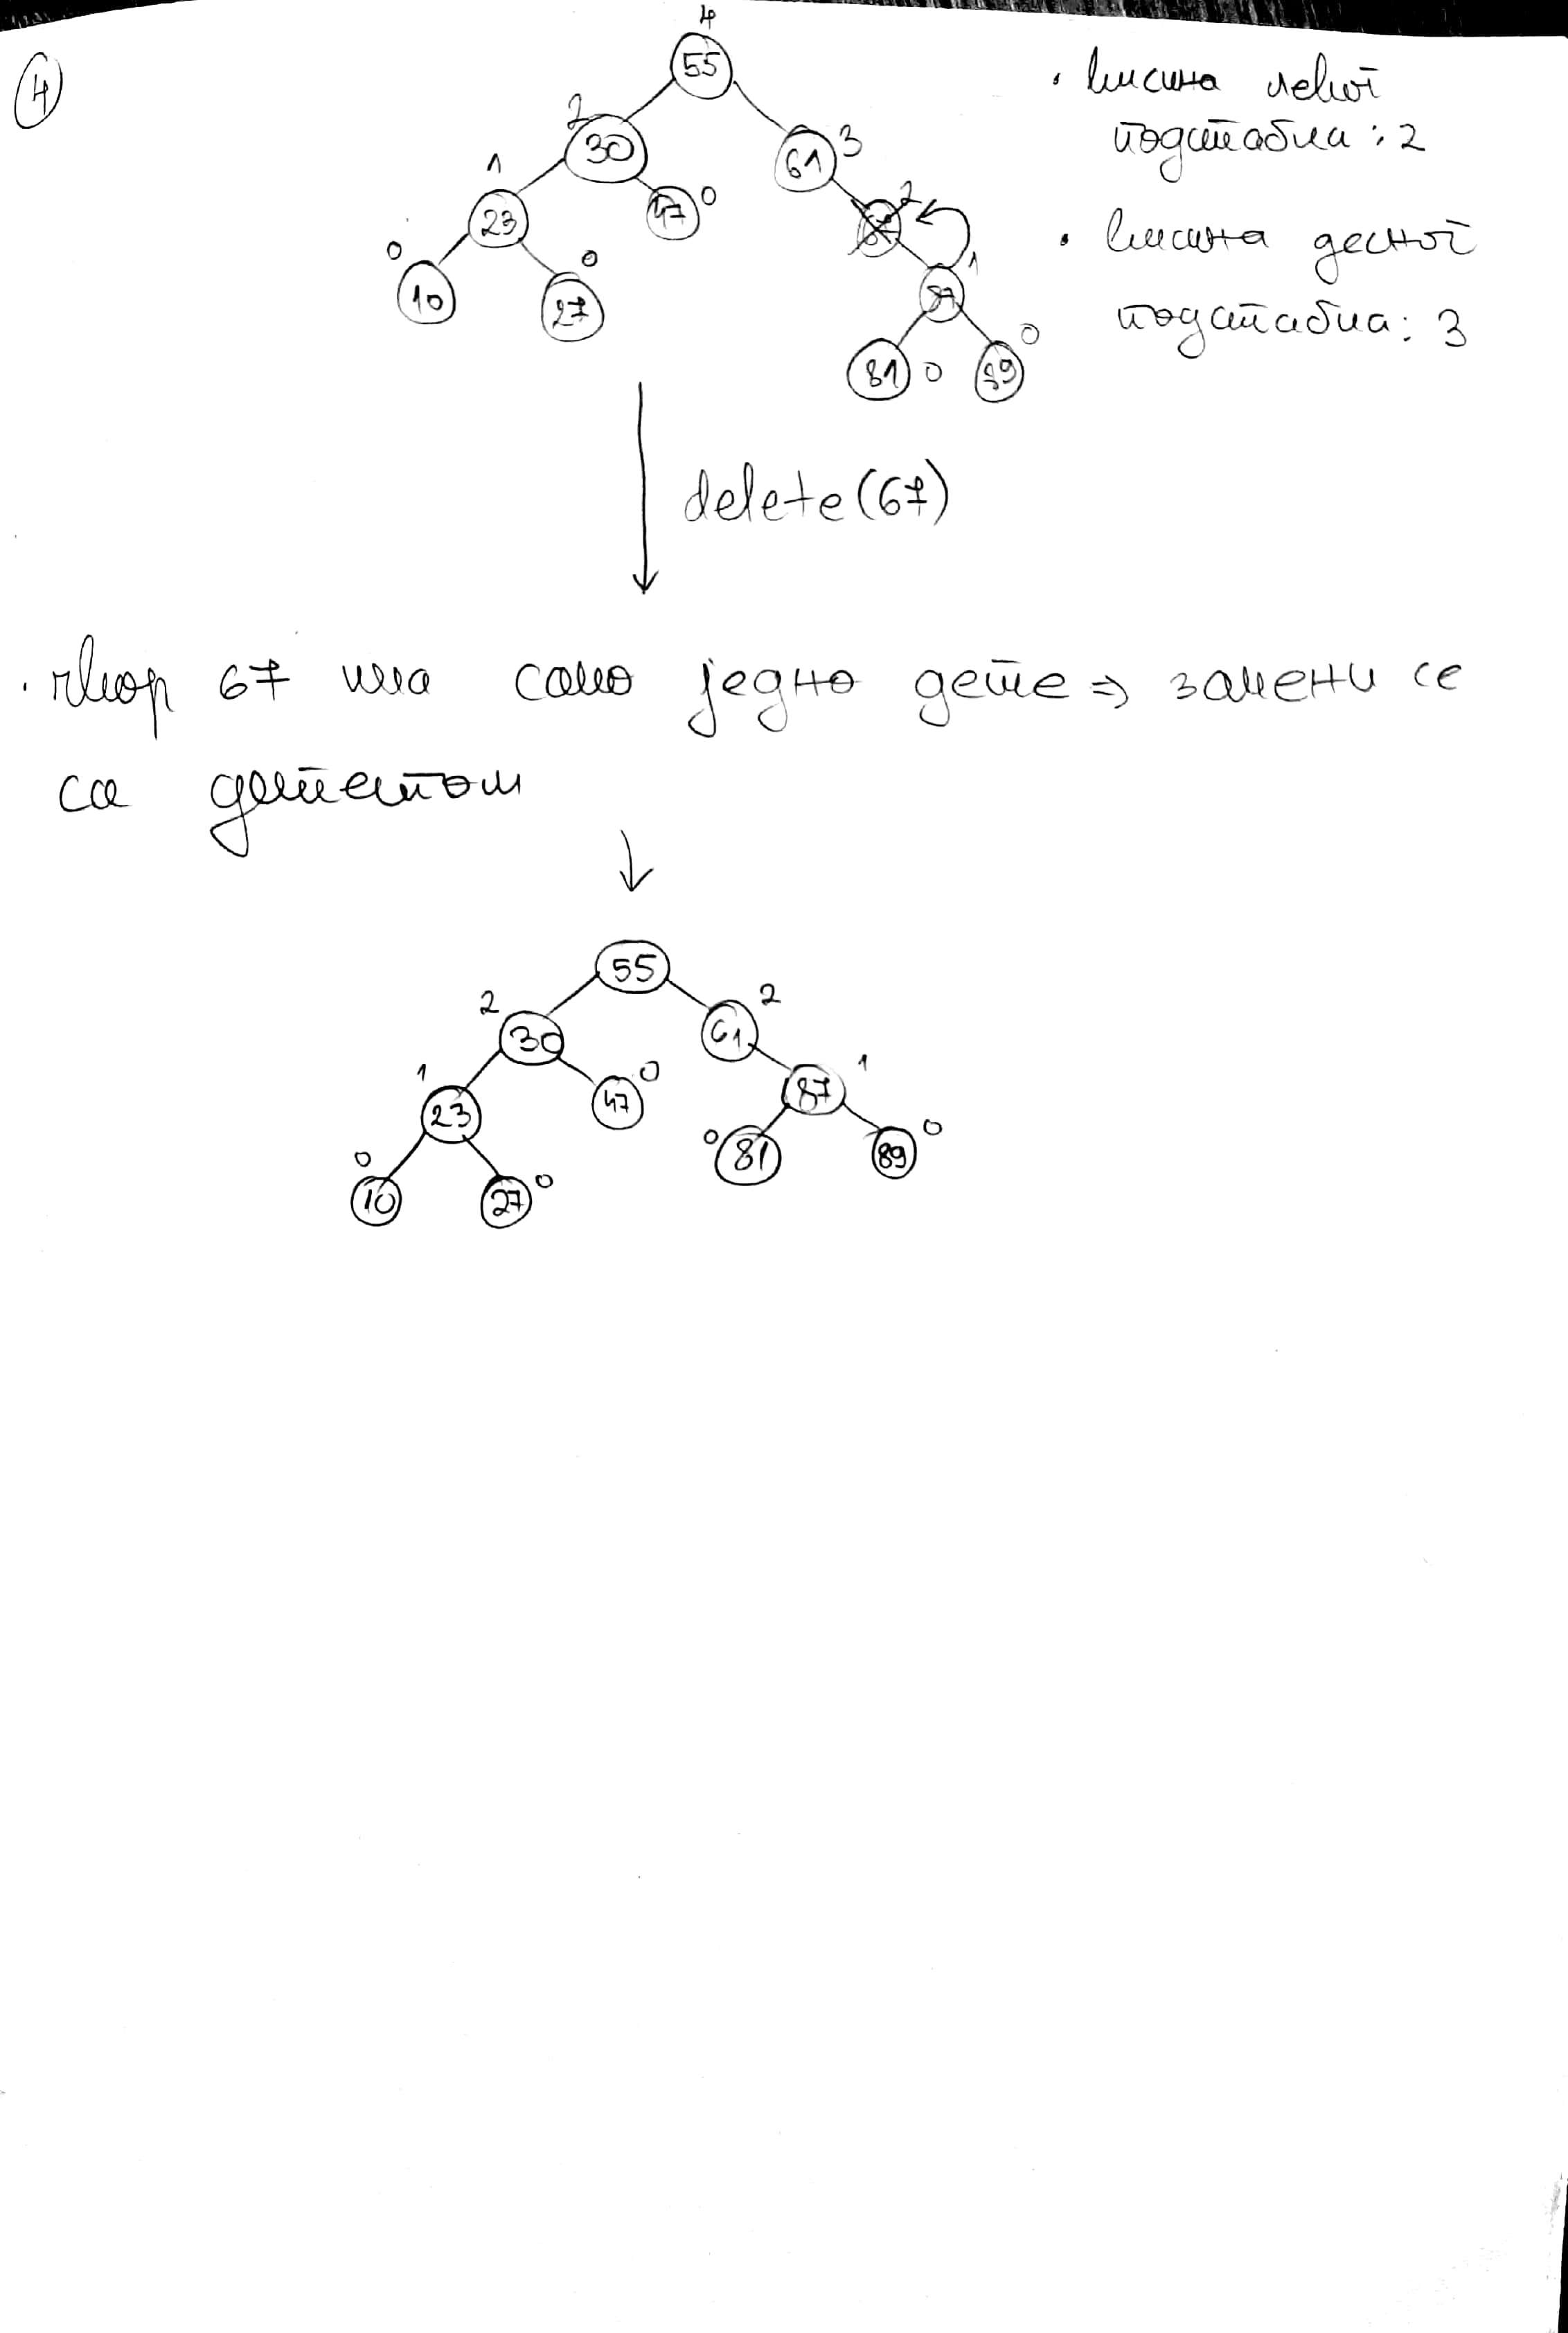 4
4
55
2
30
61 3
1
23
47 0
67 2
0
10
0
27
87 1
81 0
89 0
• висина левог
подстабла : 2
• висина десног
подстабла : 3
delete(67)
• чвор 67 има само једно дете ⇒ замени се
са дететом
55
2
30
61 2
1
23
47 0
87 1
0
10
27 0
0 81
89 0